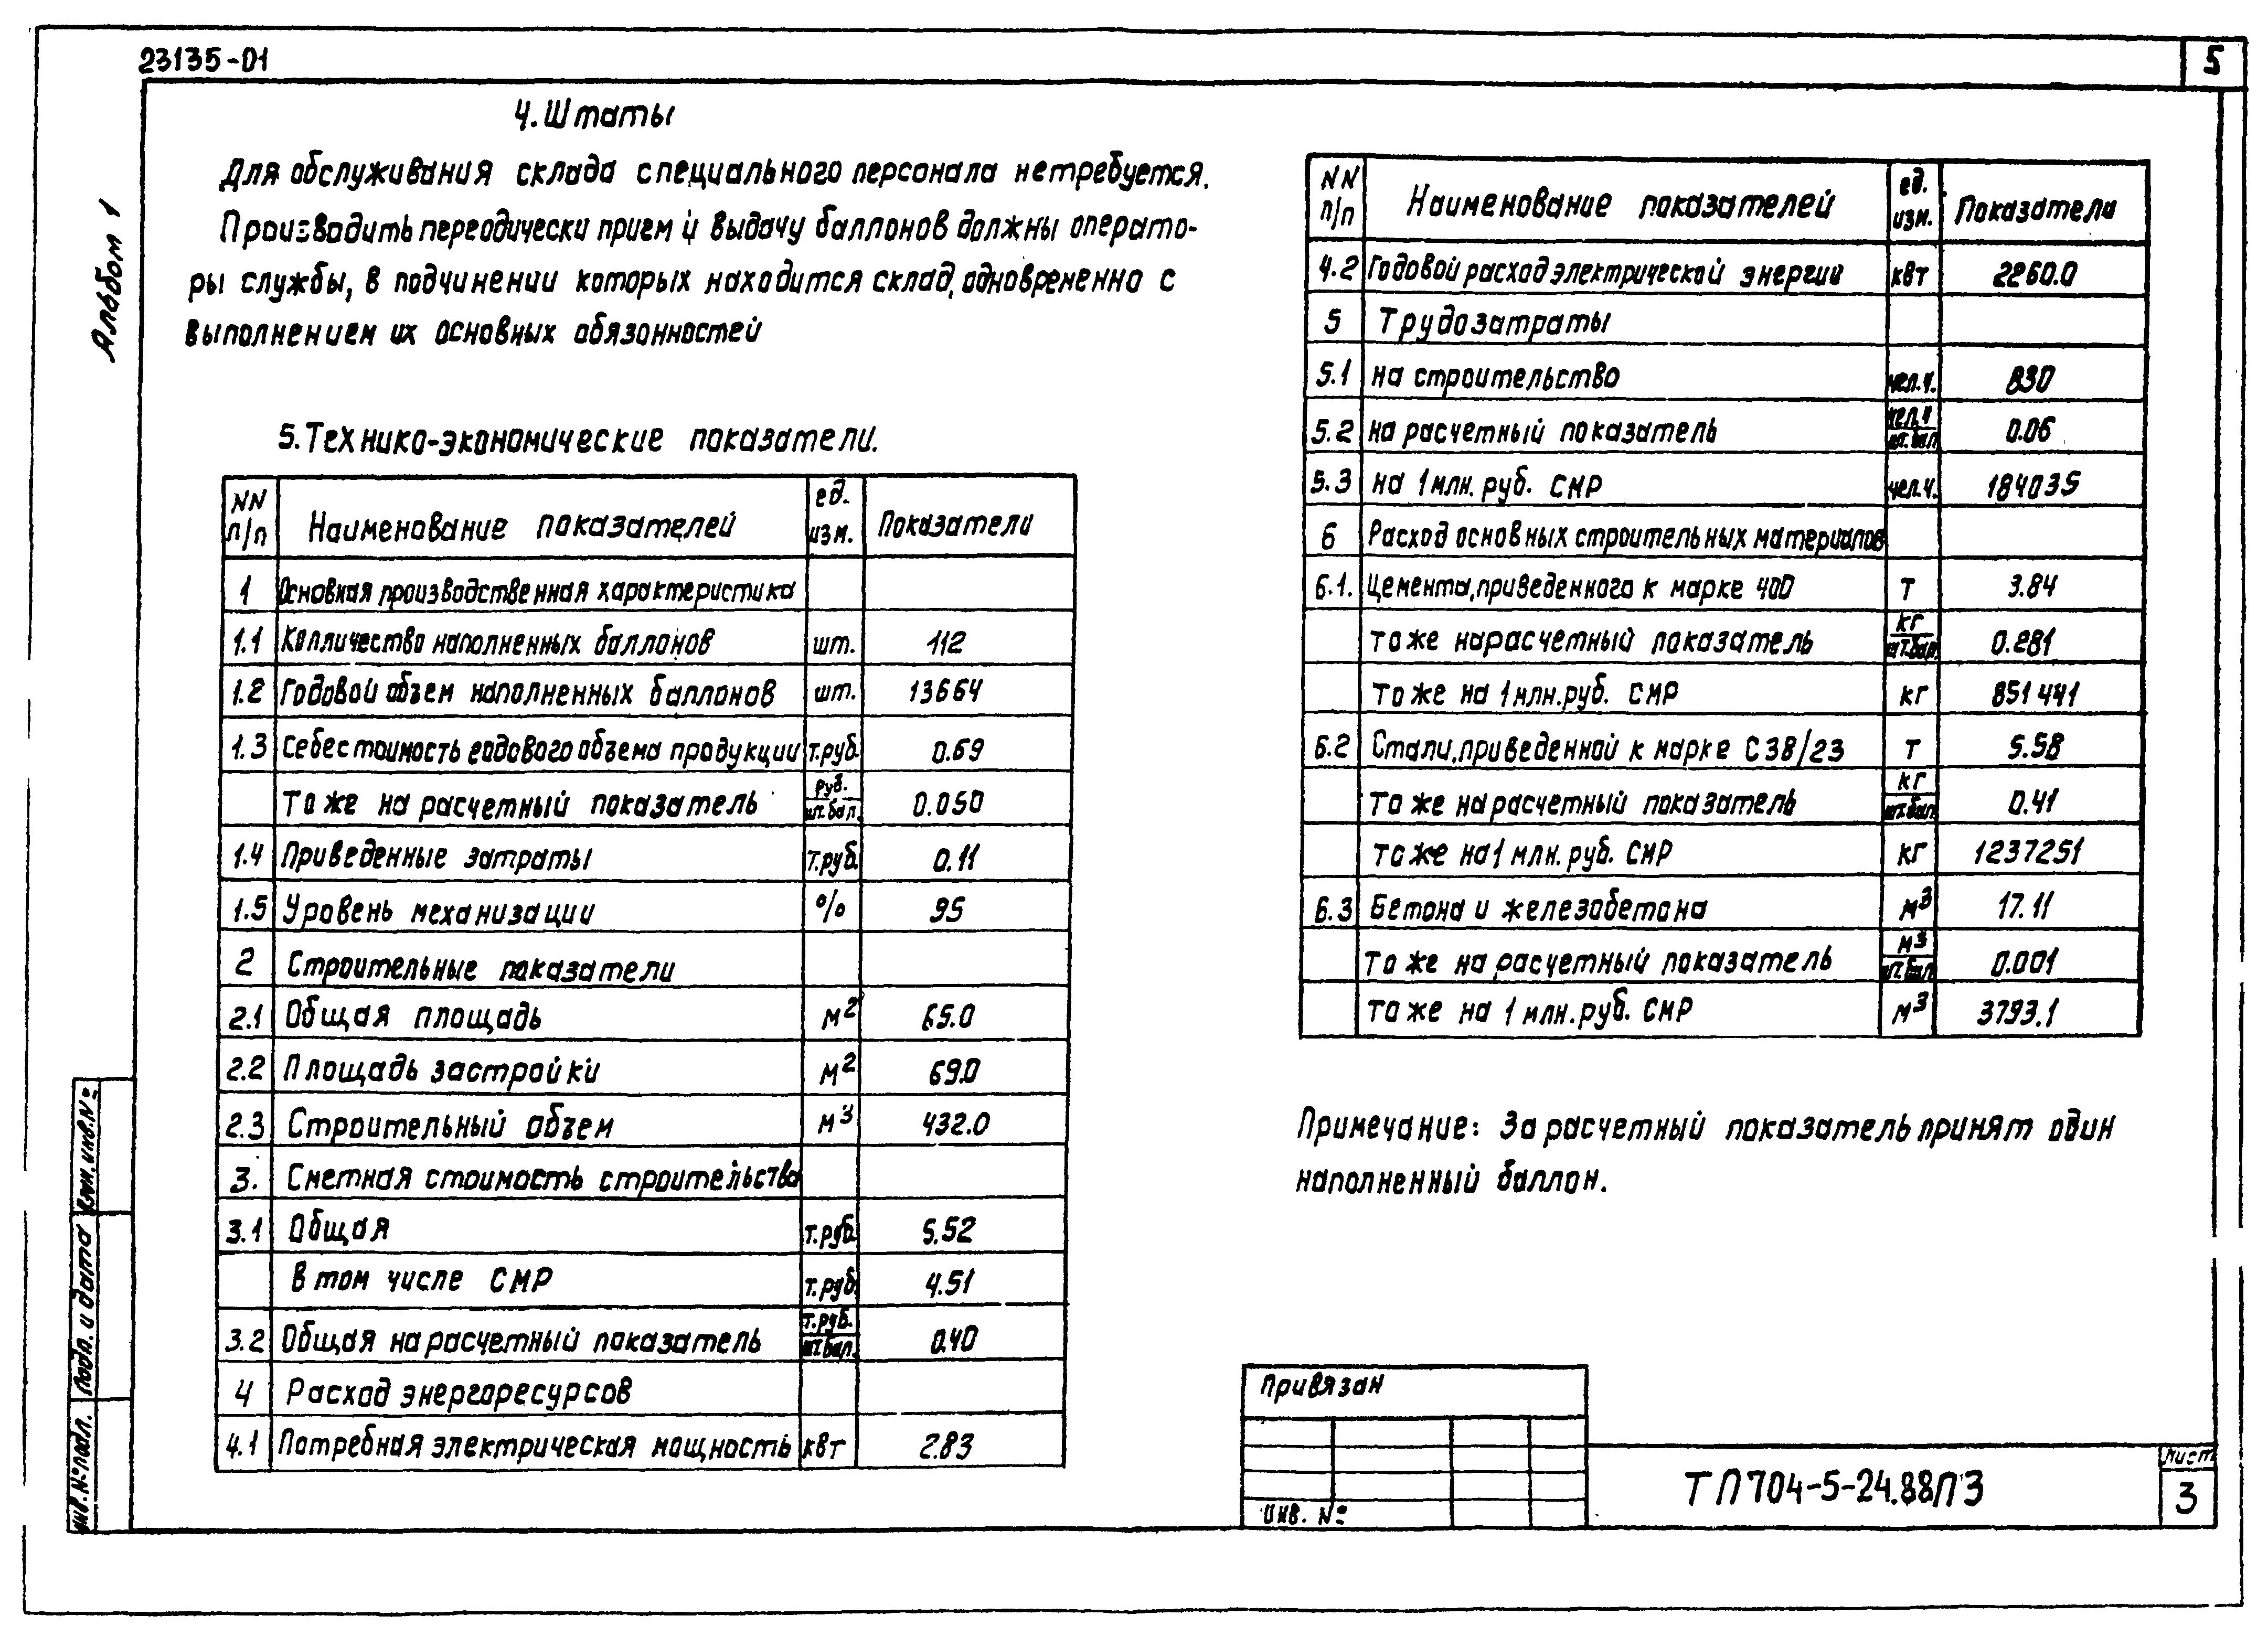 23135-01
5
Альбом 1
4. Штаты
Для обслуживания склада специального персонала не требуется.
Производить переодически прием и выдачу баллонов должны операто-
ры службы, в подчинении которых находится склад, одновременно с
выполнением их основных обязонностей
5. Технико-экономические показатели.
NN п/п Наименование показателей ед. изм. Показатели
1 Основная производственная характеристика
1.1 Колличество наполненных баллонов шт. 112
1.2 Годовой объем наполненных баллонов шт. 13664
1.3 Себестоимость годового объема продукции т.руб. 0.69
То же на расчетный показатель руб./шт.бал. 0.050
1.4 Приведенные затраты т.руб. 0.11
1.5 Уровень механизации % 95
2 Строительные показатели
2.1 Общая площадь м2 65.0
2.2 Площадь застройки м2 69.0
2.3 Строительный объем м3 432.0
3. Сметная стоимость строительства
3.1 Общая т.руб. 5.52
В том числе СМР т.руб. 4.51
3.2 Общая на расчетный показатель т.руб./шт.бал. 0.40
4 Расход энергоресурсов
4.1 Потребная электрическая мощность квт 2.83
NN п/п Наименование показателей ед. изм. Показатели
4.2 Годовой расход электрической энергии квт 2260.0
5 Трудозатраты
5.1 на строительство чел.ч. 830
5.2 на расчетный показатель чел.ч/шт.бал 0.06
5.3 на 1 млн. руб. СМР чел.ч. 184035
6 Расход основных строительных материалов
6.1. Цемента, приведенного к марке 400 т 3.84
то же на расчетный показатель кг/шт.бал. 0.281
то же на 1 млн. руб. СМР кг 851441
6.2 Стали, приведенной к марке С38/23 т 5.58
то же на расчетный показатель кг/шт.бал 0.41
то же на 1 млн. руб. СМР кг 1237251
6.3 Бетона и железобетона м3 17.11
то же на расчетный показатель м3/шт.бал 0.001
то же на 1 млн. руб. СМР м3 3793.1
Примечание: За расчетный показатель принят один
наполненный баллон.
Привязан
Инв. №
ТП704-5-24.88ПЗ
Лист
3
Взам. инв. №
Подп. и дата
Инв. № подл.